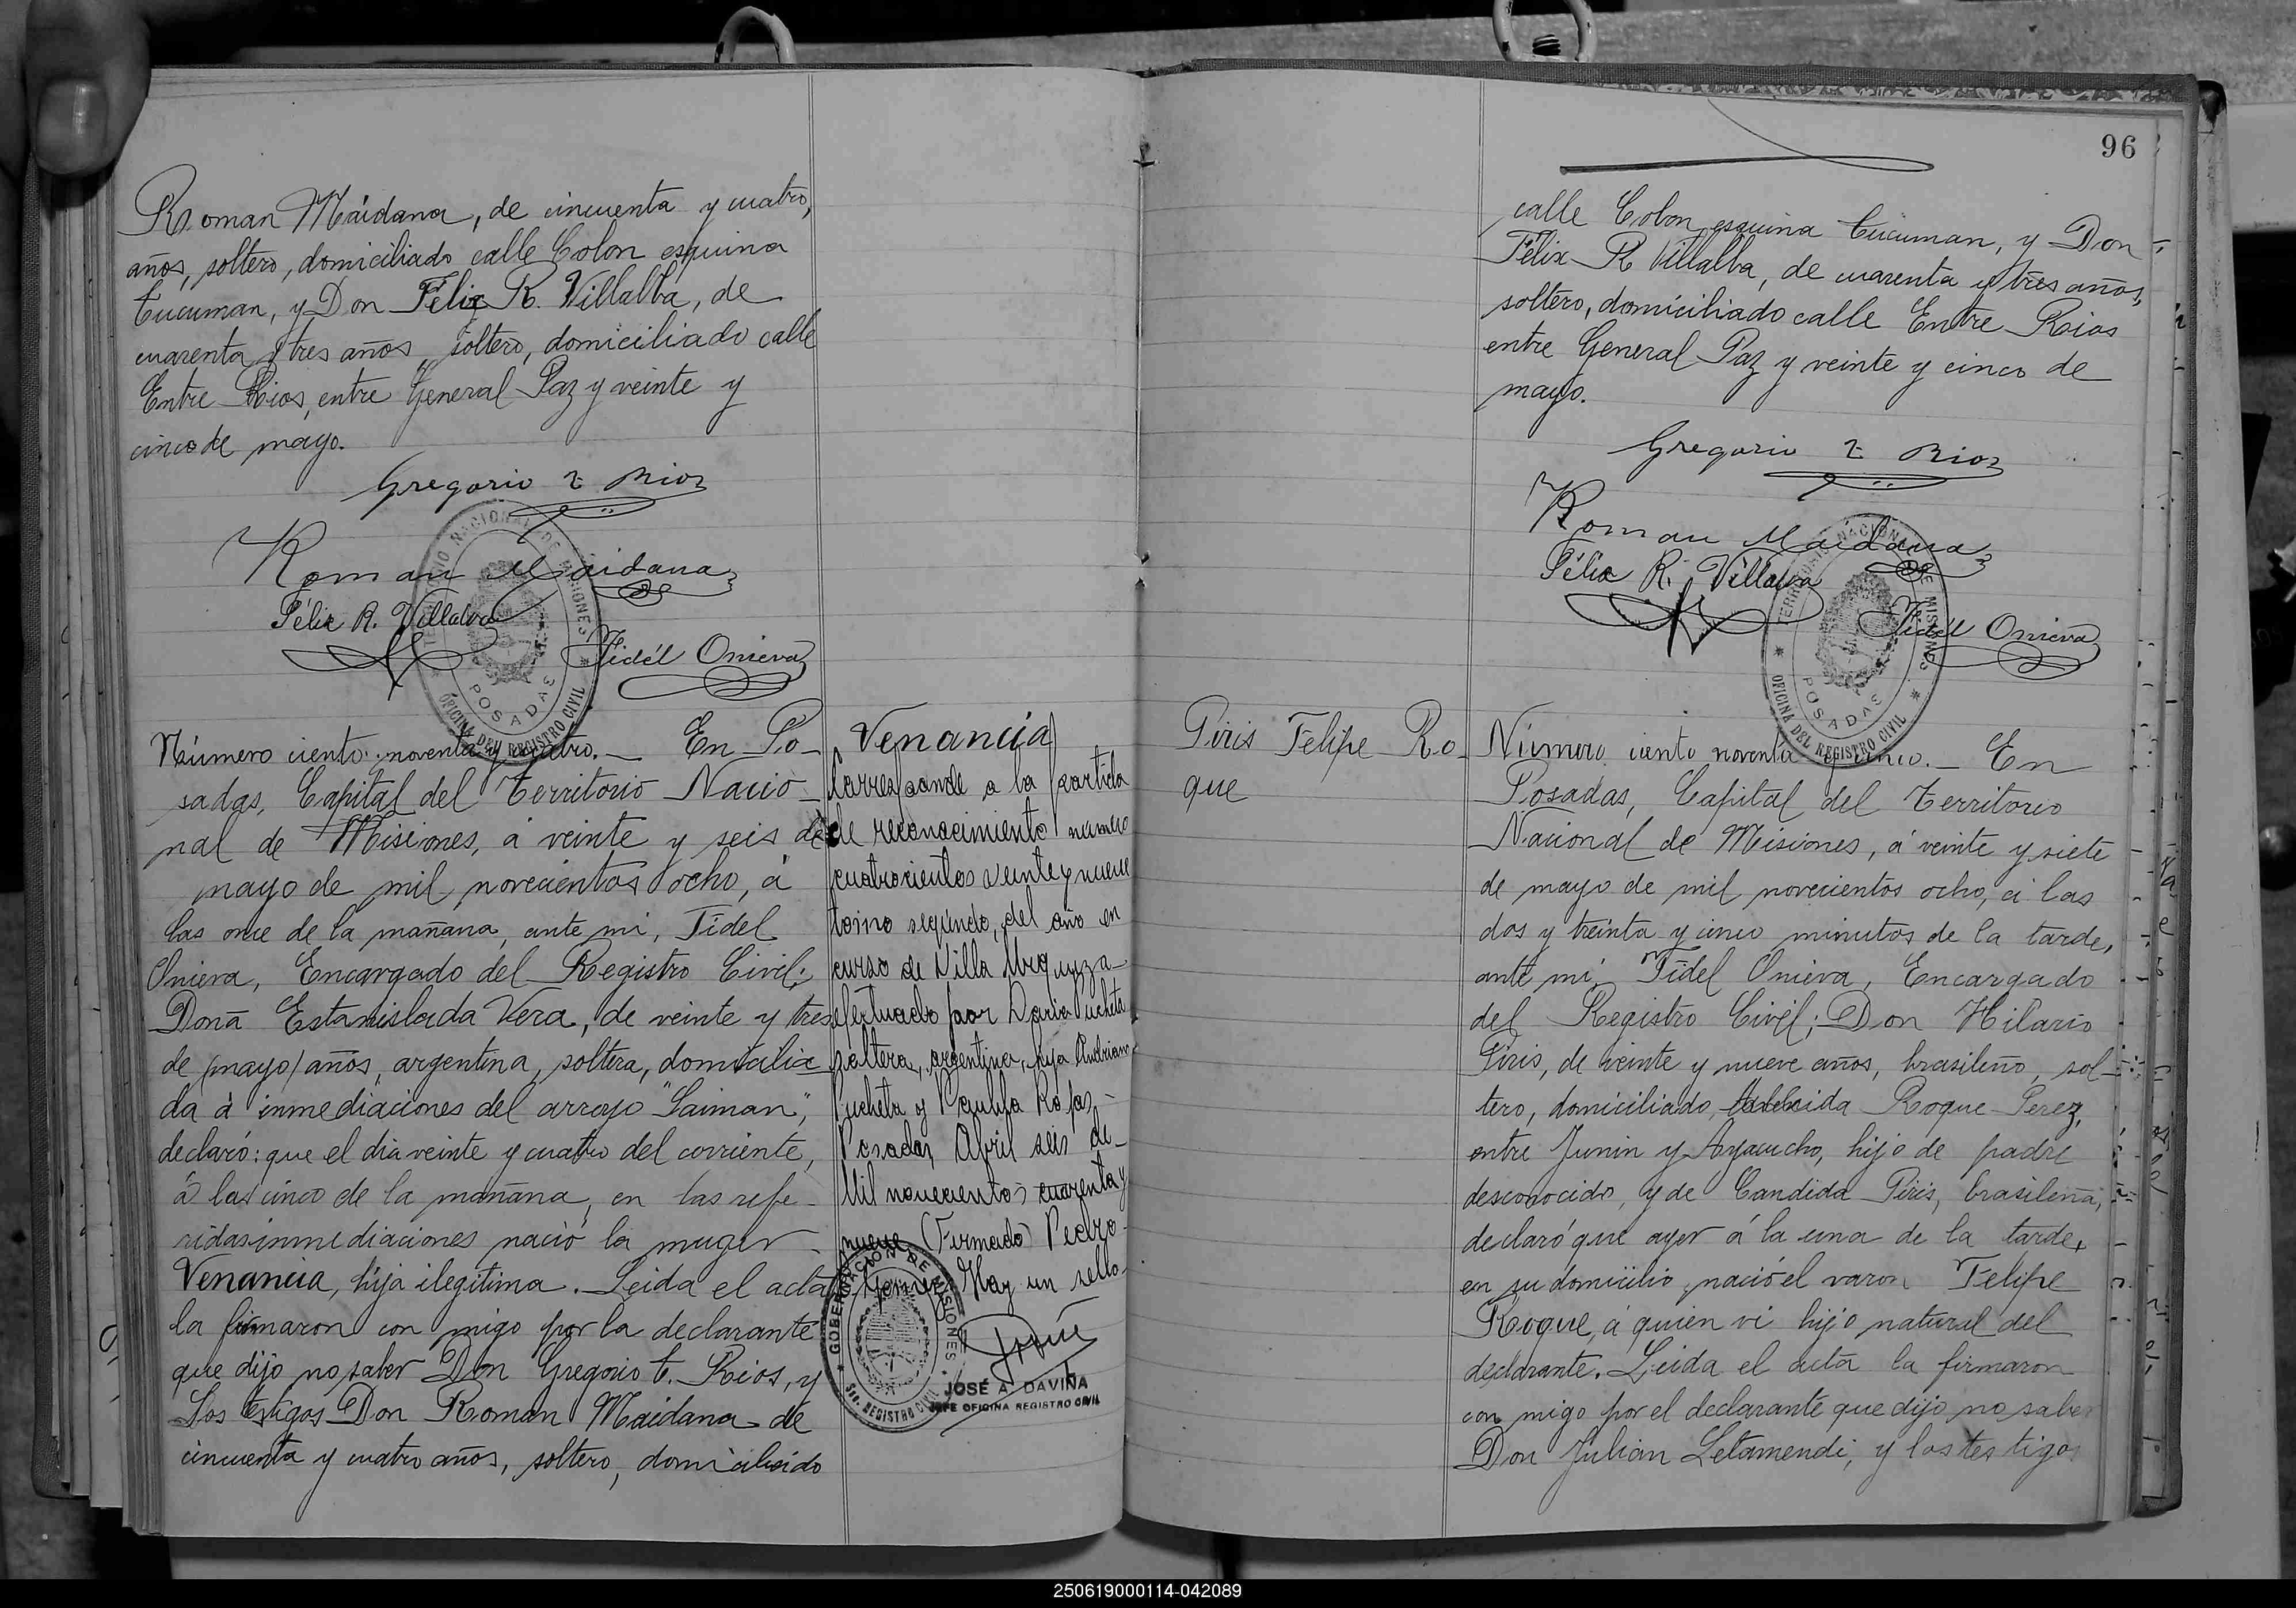 Roman Maidana, de cincuenta y cuatro,
años, soltero, domiciliado calle Colon esquina
Tucuman, y Don Félix R. Villalba, de
cuarenta y tres años, soltero, domiciliado calle
Entre Rios, entre General Paz y veinte y
cinco de mayo.
Gregorio T Rios
Roman Maidana
Félix R. Villalva
Fidél Onieva
TERRITORIO NACIONAL DE MISIONES
POSADAS
OFICINA DEL REGISTRO CIVIL
Número ciento noventa y cuatro. — En Po-
sadas, Capital del Territorio Nacio-
nal de Misiones, á veinte y seis de
mayo de mil novecientos ocho, á
las once de la mañana, ante mi, Fidel
Onieva, Encargado del Registro Civil;
Doña Estanislada Vera, de veinte y tres
de (mayo) años, argentina, soltera, domicilia
da á inmediaciones del arroyo "Saiman",
declaró: que el dia veinte y cuatro del corriente,
á las cinco de la mañana, en las refe-
ridas inmediaciones nació la muger
Venancia, hija ilegitima. Leida el acta
la firmaron con migo por la declarante
que dijo no saber Don Gregorio T. Rios, y
los testigos Don Roman Maidana de
cincuenta y cuatro años, soltero, domiciliado
Venancia
Corresponde a la partida
de reconocimiento número
cuatrocientos veinte y nueve
tomo segundo, del año en
curso de Villa Urquyza-
efectuado por Dario Pucheta
soltero, argentino, hijo Andriano
Pucheta y Paulifa Rojas-
Posadas, Abril seis de-
Mil novecientos cuarenta y
nueve (Firmado) Pedro-
Gomez Hay un sello-
GOBERNACION DE MISIONES
REGISTRO CIVIL
JOSÉ A. DAVIÑA
JEFE OFICINA REGISTRO CIVIL
96
calle Colon esquina Tucuman, y Don
Félix R Villalba, de cuarenta y tres años,
soltero, domiciliado calle Entre Rios
entre General Paz y veinte y cinco de
mayo.
Gregorio T Rios
Roman Maidana
Félix R. Villalva
Fidél Onieva
TERRITORIO NACIONAL DE MISIONES
POSADAS
OFICINA DEL REGISTRO CIVIL
Piris Felipe Ro-
que
Número ciento noventa y cinco. — En
Posadas, Capital del Territorio
Nacional de Misiones, á veinte y siete
de mayo de mil novecientos ocho, á las
dos y treinta y cinco minutos de la tarde,
ante mi, Fidel Onieva, Encargado
del Registro Civil; Don Hilario
Piris, de veinte y nueve años, brasileño, sol-
tero, domiciliado, Roque Perez,
entre Junin y Ayacucho, hijo de padre
desconocido, y de Candida Piris, brasileña,
declaró que ayer á la una de la tarde,
en su domicilio, nació el varon Felipe
Roque, á quien vi hijo natural del
declarante. Leida el acta la firmaron
con migo por el declarante que dijo no saber
Don Julian Letamendi, y los testigos
250619000114-042089